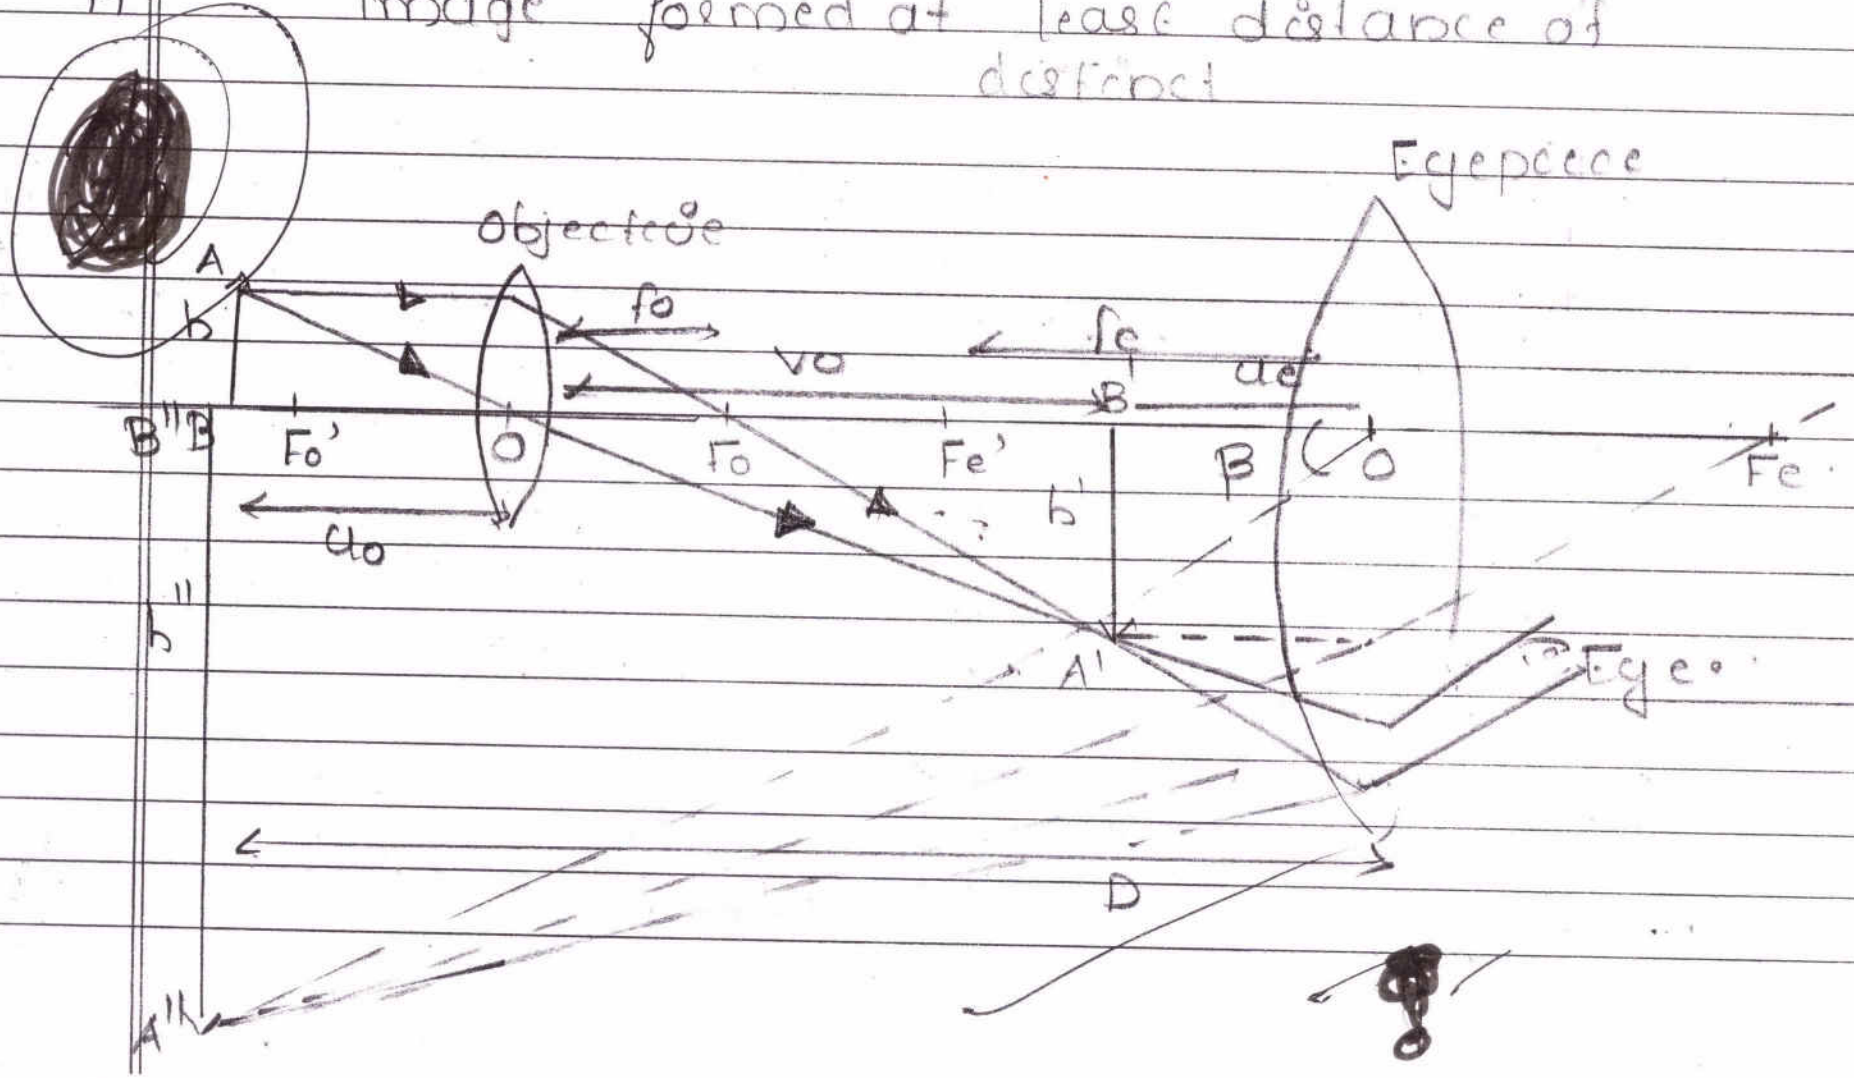 Image formed at least distance of
distinct
Eyepiece
Objective
A
h
fo
fe
vo
ue
B'
B" B
Fo'
O
Fo
Fe'
β
O
Fe
uo
h'
h"
A'
Eye
D
A"